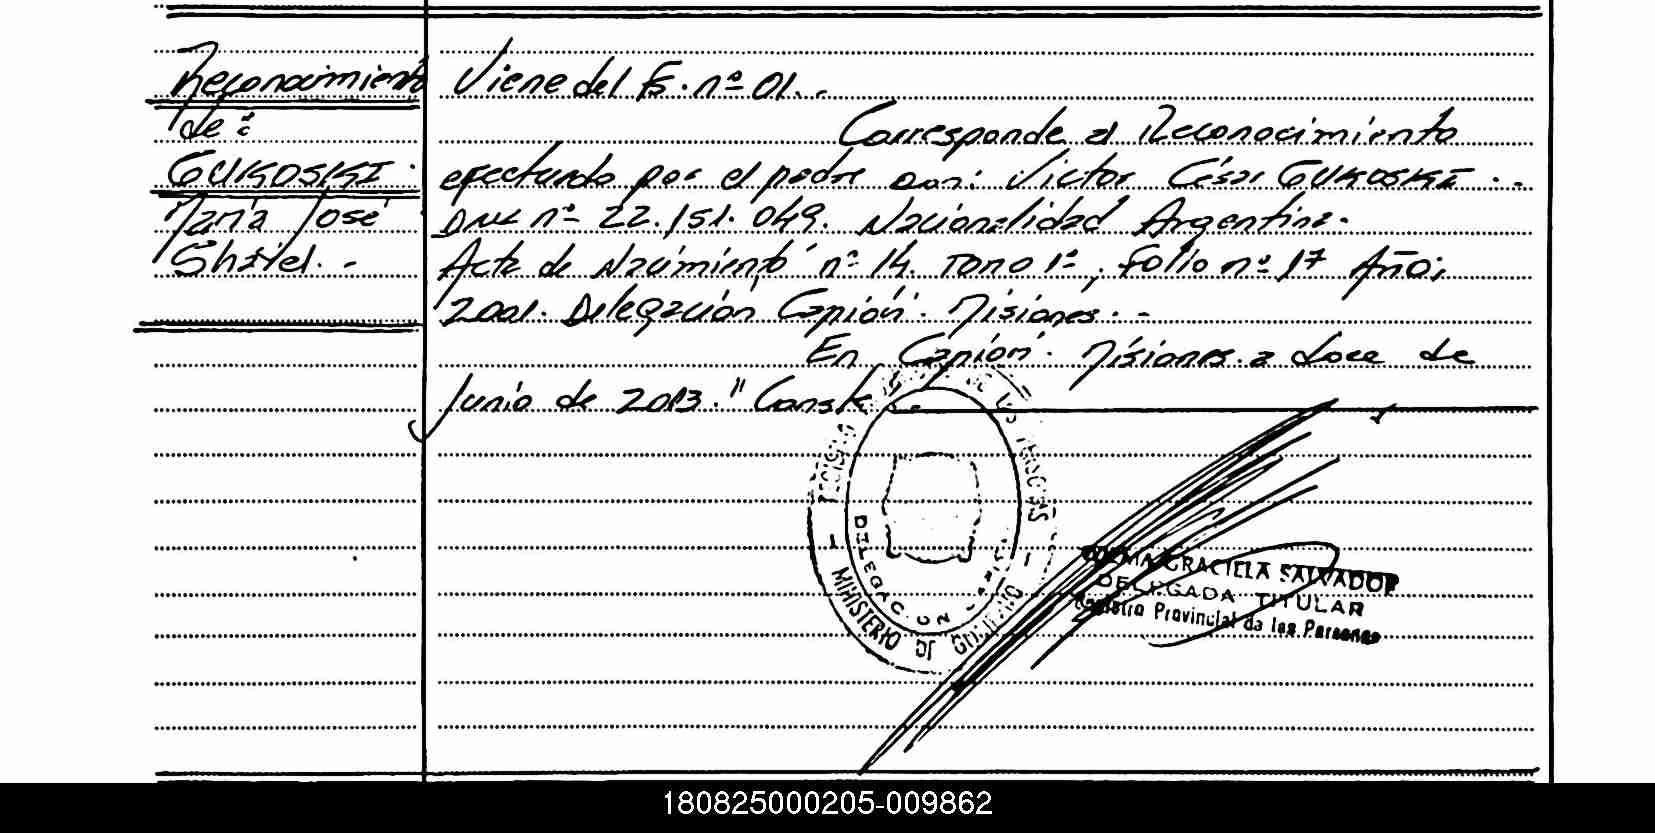 Reconocimiento
de:
GUKOSKI.
María José
Shitel.-
Viene del Fº. nº 01.-
Corresponde al Reconocimiento
efectuado por el padre Don: Victor César GUKOSKI.-
DNI nº 22.151.049. Nacionalidad Argentina.
Acta de Nacimiento nº 14. Tomo 1º, Folio nº 17 Año:
2001. Delegación Capioví. Misiones.-
En Capioví. Misiones. a doce de
Junio de 2013." Conste.-
DELEGACION
MINISTERIO DE GOBIERNO
GRACIELA SALVADOR
DELEGADA TITULAR
Registro Provincial de las Personas
180825000205-009862